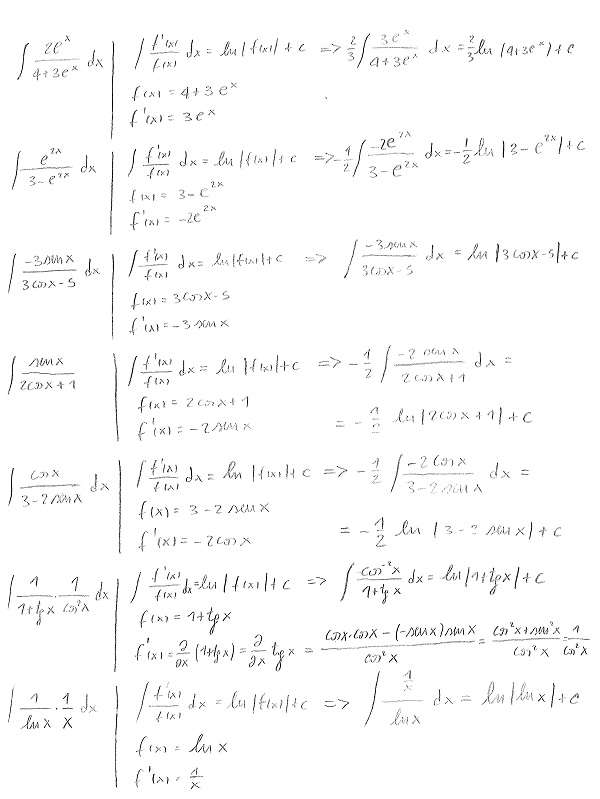 ∫ 2e^x / (4+3e^x) dx | ∫ f'(x)/f(x) dx = ln|f(x)| + c => 2/3 ∫ 3e^x / (4+3e^x) dx = 2/3 ln(4+3e^x) + c
f(x) = 4+3e^x
f'(x) = 3e^x
∫ e^2x / (3-e^2x) dx | ∫ f'(x)/f(x) dx = ln|f(x)| + c => -1/2 ∫ -2e^2x / (3-e^2x) dx = -1/2 ln|3-e^2x| + c
f(x) = 3-e^2x
f'(x) = -2e^2x
∫ -3senx / (3cosx-5) dx | ∫ f'(x)/f(x) dx = ln|f(x)| + c => ∫ -3senx / (3cosx-5) dx = ln|3cosx-5| + c
f(x) = 3cosx-5
f'(x) = -3senx
∫ senx / (2cosx+1) | ∫ f'(x)/f(x) dx = ln|f(x)| + c => -1/2 ∫ -2senx / (2cosx+1) dx =
f(x) = 2cosx+1
f'(x) = -2senx = -1/2 ln|2cosx+1| + c
∫ cosx / (3-2senx) dx | ∫ f'(x)/f(x) dx = ln|f(x)| + c => -1/2 ∫ -2cosx / (3-2senx) dx =
f(x) = 3-2senx
f'(x) = -2cosx = -1/2 ln|3-2senx| + c
∫ 1/(1+tgx) · 1/cos²x dx | ∫ f'(x)/f(x) dx = ln|f(x)| + c => ∫ cos^-2 x / (1+tgx) dx = ln|1+tgx| + c
f(x) = 1+tgx
f'(x) = ∂/∂x (1+tgx) = ∂/∂x tgx = (cosx·cosx-(-senx)senx) / cos²x = (cos²x+sen²x) / cos²x = 1/cos²x
∫ 1/lnx · 1/x dx | ∫ f'(x)/f(x) dx = ln|f(x)| + c => ∫ (1/x) / lnx dx = ln|lnx| + c
f(x) = lnx
f'(x) = 1/x